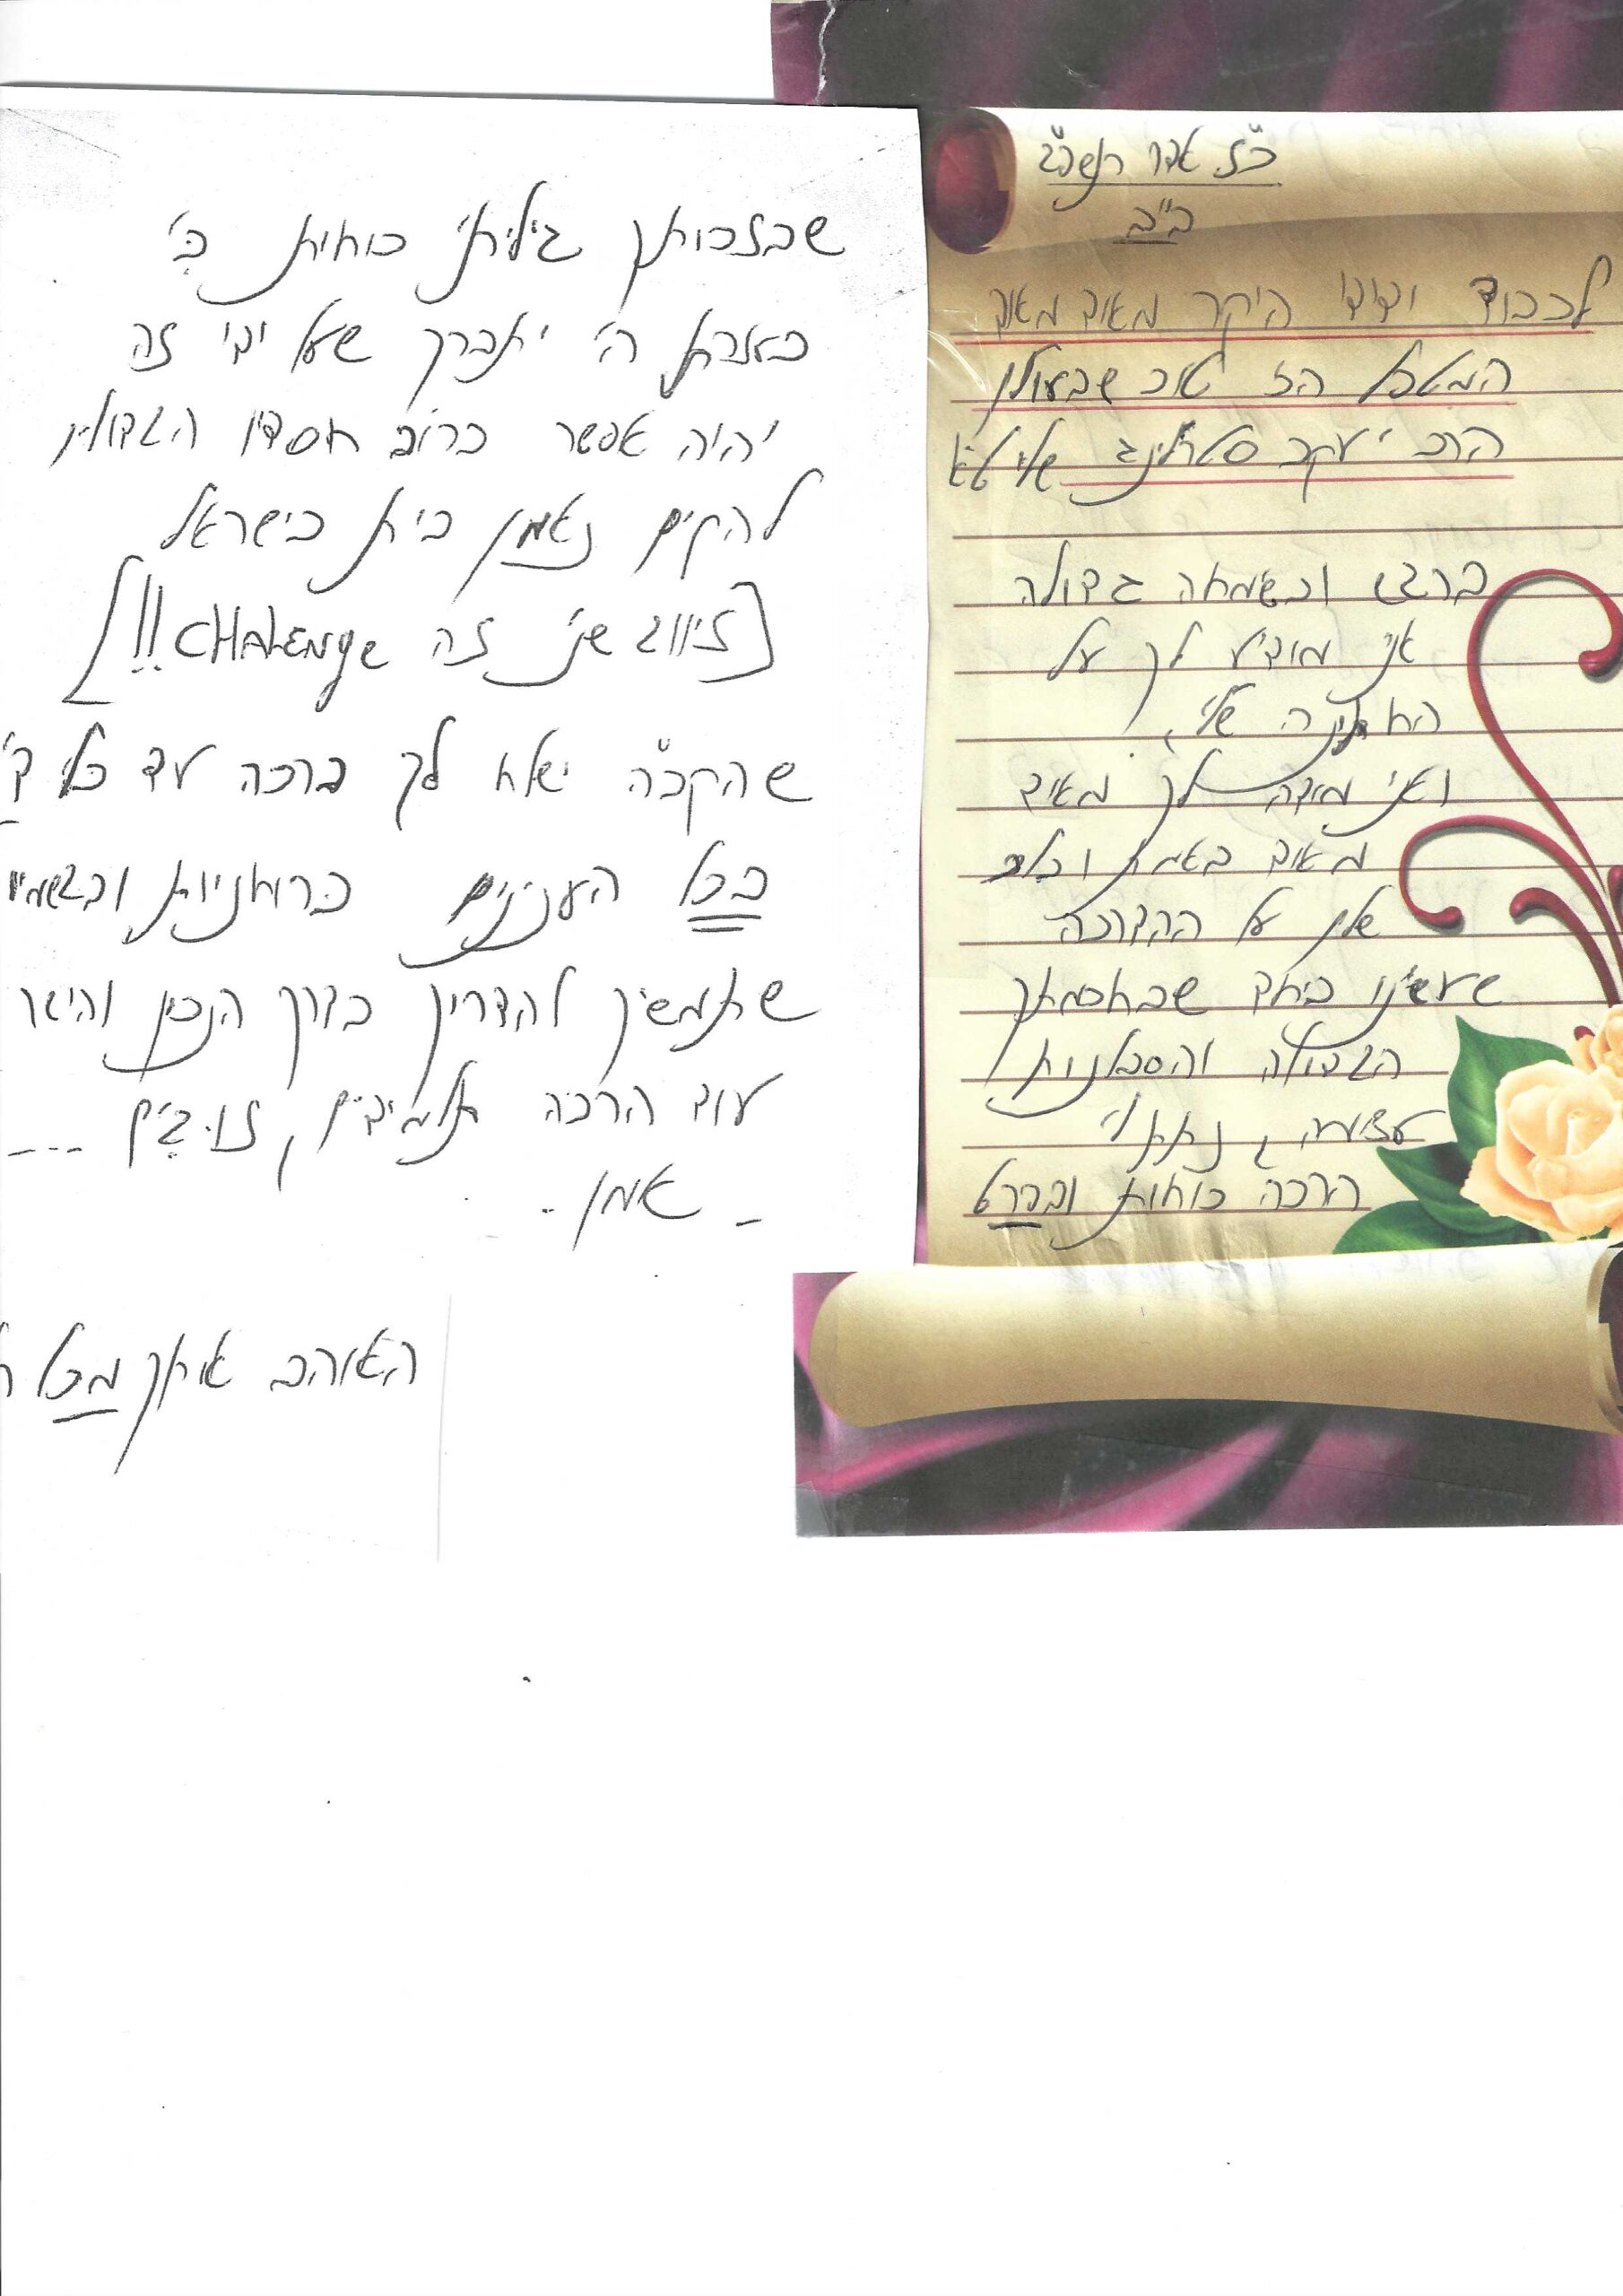 כ"ז אדר תשפ"ג
ב"ב
לכבוד ידידי היקר מאוד מאוד
המטפל הכי טוב שבעולם
הרב יעקב סטרלינג שליט"א
ברגש ובשמחה גדולה
אני מודיע לך על
החתונה שלי,
ואני מודה לך מאוד
מאוד באמת ובלב
שלם על ההדרכה
שעשינו ביחד שבחכמתך
הגדולה והסבלנות
עצומה, נתת לי
הרבה כוחות ובפרט
שבזכותך גיליתי כוחות בי
בעזרת ה' יתברך שעל ידי זה
יהיה אפשר ברוב חסדיו הגדולים
להקים נאמן בית בישראל
[זיווג שני זה CHALENge!!]
שהקב"ה ישלח לך ברכה עד בלי ד'
בכל הענינים ברוחניות ובגשמיו
שתמשיך להדריך בדרך הנכון והישר
עוד הרבה תלמידים, זוגים ...
- אמן -
האוהב אותך מכל ה